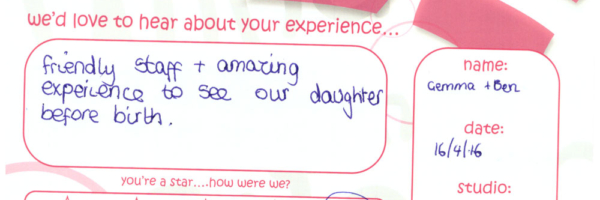 we'd love to hear about your experience...
friendly staff + amazing
experience to see our daughter
before birth.
name:
Gemma + Ben
date:
16/4/16
studio:
you're a star....how were we?